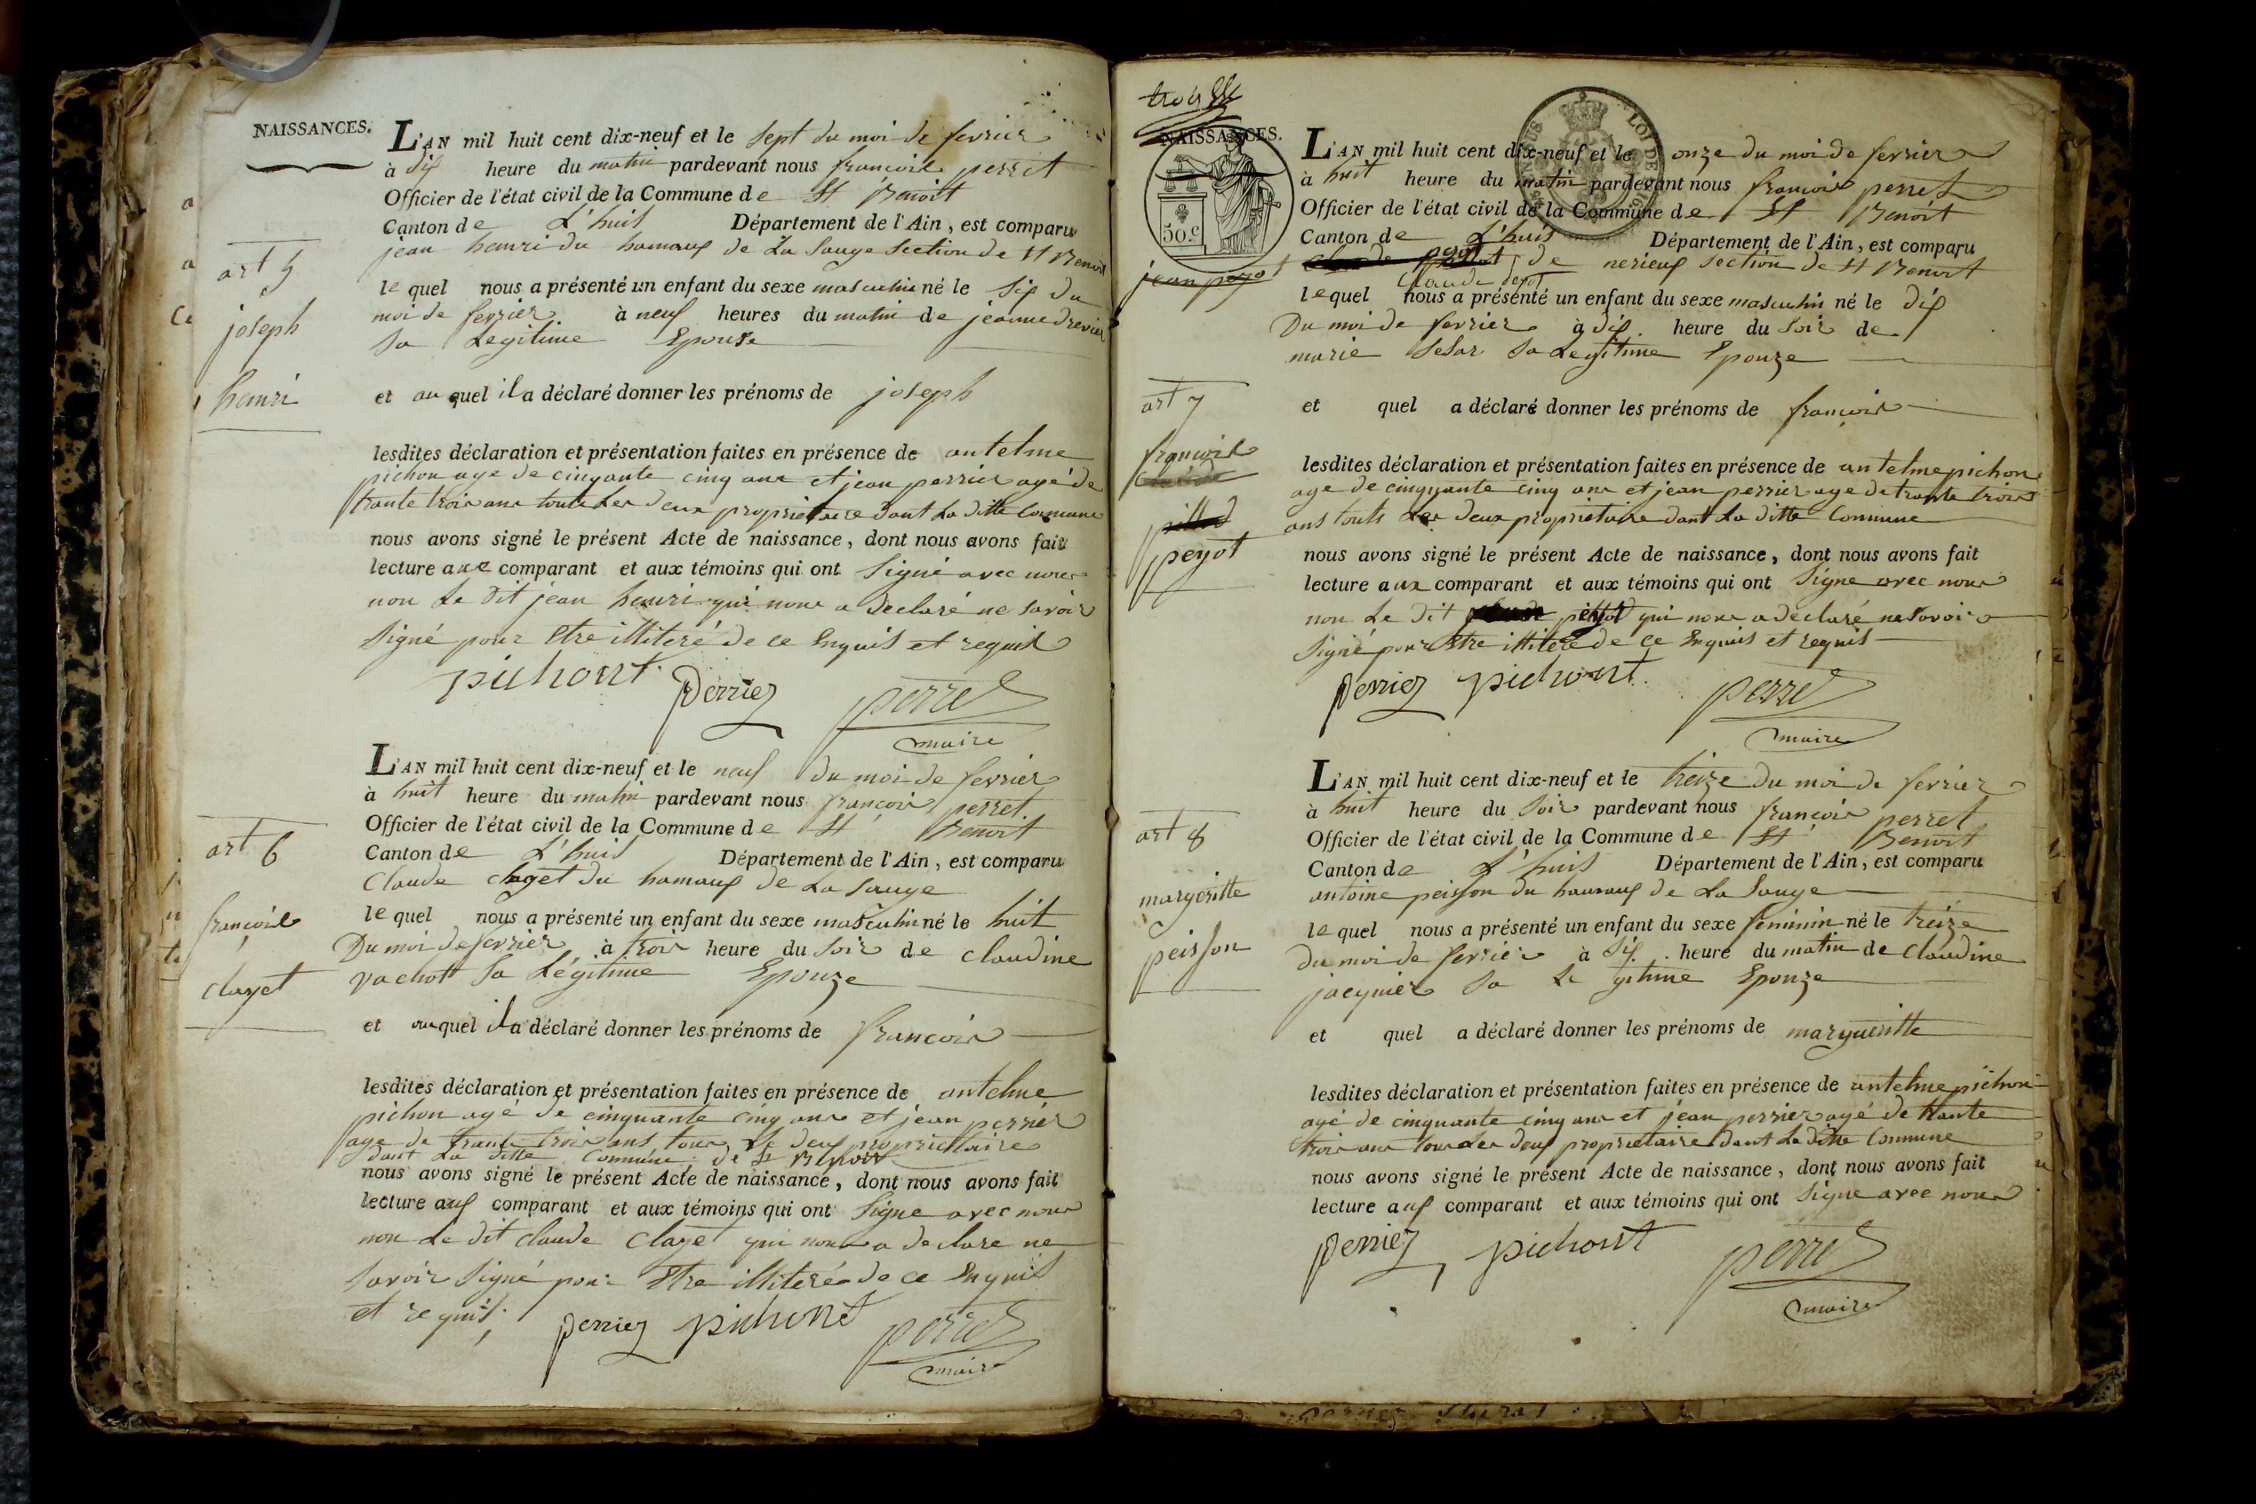 NAISSANCES.
L'AN mil huit cent dix-neuf et le sept du moi de fevrier
à dix heure du matin pardevant nous françois perret
Officier de l'état civil de la Commune de St Benoit
Canton de L'huis Département de l'Ain, est comparu
jean henri du hamaux de La Sauge Section de St Benoit
art 5
le quel nous a présenté un enfant du sexe masculin né le six du
moi de fevrier à neuf heures du matin de jeanne drevier
sa Legitime Epouse
joseph
henri
et au quel il a déclaré donner les prénoms de joseph
lesdites déclaration et présentation faites en présence de antelme
pichon age de cinqante cinq ans et jean perrier agé de
trante trois ans touts Les deux proprietaire dant La ditte Commune
nous avons signé le présent Acte de naissance, dont nous avons fait
lecture aux comparant et aux témoins qui ont Signé avec nous
non Le dit jean henri qui nous a declaré ne savoir
Signé pour Etre illiteré de ce Enquis et requis
pichont perrier perret
maire
L'AN mil huit cent dix-neuf et le neuf du moi de fevrier
à huit heure du matin pardevant nous françois perret
Officier de l'état civil de la Commune de St Benoit
art 6
Canton de L'huis Département de l'Ain, est comparu
Claude clayet du hamaux de La Sauge
françois
clayet
le quel nous a présenté un enfant du sexe masculin né le huit
Du moi de fevrier à trois heure du Soir de claudine
vachott Sa Légitime Epouze
et auquel il a déclaré donner les prénoms de françois
lesdites déclaration et présentation faites en présence de antelme
pichon agé de cinquante cinq ans et jean perrier
age de trante trois ans tous Le deux propriettaire
dant La ditte Commune de St Benoit
nous avons signé le présent Acte de naissance, dont nous avons fait
lecture aux comparant et aux témoins qui ont Signe avec nous
non Le dit claude Claye qui nous a declare ne
Savoir Signé pour Etre illiteré de ce Enquis
et requis
perrier pichont perret
maire
trois
NAISSANCES.
50.c
TIMBRE LOI DE 1816
L'AN mil huit cent dix-neuf et le onze du moi de fevrier
à huit heure du matin pardevant nous françois perret
Officier de l'état civil de la Commune de St Benoit
Canton de L'huis Département de l'Ain, est comparu
jean peyot
de nerieux Section de St Benoit
le quel nous a présenté un enfant du sexe masculin né le dix
Du moi de fevrier à dix heure du Soir de
marie Sa Legitime Epouze
art 7
françois
peyot
et quel a déclaré donner les prénoms de françois
lesdites déclaration et présentation faites en présence de antelme pichon
age de cinquante cinq ans et jean perrier age de trante trois
ans touts Les deux proprietaire dant La ditte Commune
nous avons signé le présent Acte de naissance, dont nous avons fait
lecture aux comparant et aux témoins qui ont Signe avec nous
non Le dit qui nous a déclaré ne Savoir
Signé pour Etre illiteré de ce Enquis et requis
perrier pichont perret
maire
L'AN mil huit cent dix-neuf et le treize du moi de fevrier
à huit heure du Soir pardevant nous françois perret
art 8
Officier de l'état civil de la Commune de St Benoit
Canton de L'huis Département de l'Ain, est comparu
antoine peisson du hamaux de La Sauge
margeritte
peisson
le quel nous a présenté un enfant du sexe feminin né le treize
du moi de fevrier à six heure du matin de Claudine
jacquier Sa Legitime Epouze
et quel a déclaré donner les prénoms de margueritte
lesdites déclaration et présentation faites en présence de antelme pichon
agé de cinquante cinq ans et jean perrier agé de trante
trois ans tous Les deux proprietaire dant La ditte Commune
nous avons signé le présent Acte de naissance, dont nous avons fait
lecture aux comparant et aux témoins qui ont Signe avec nous
perrier pichont perret
maire